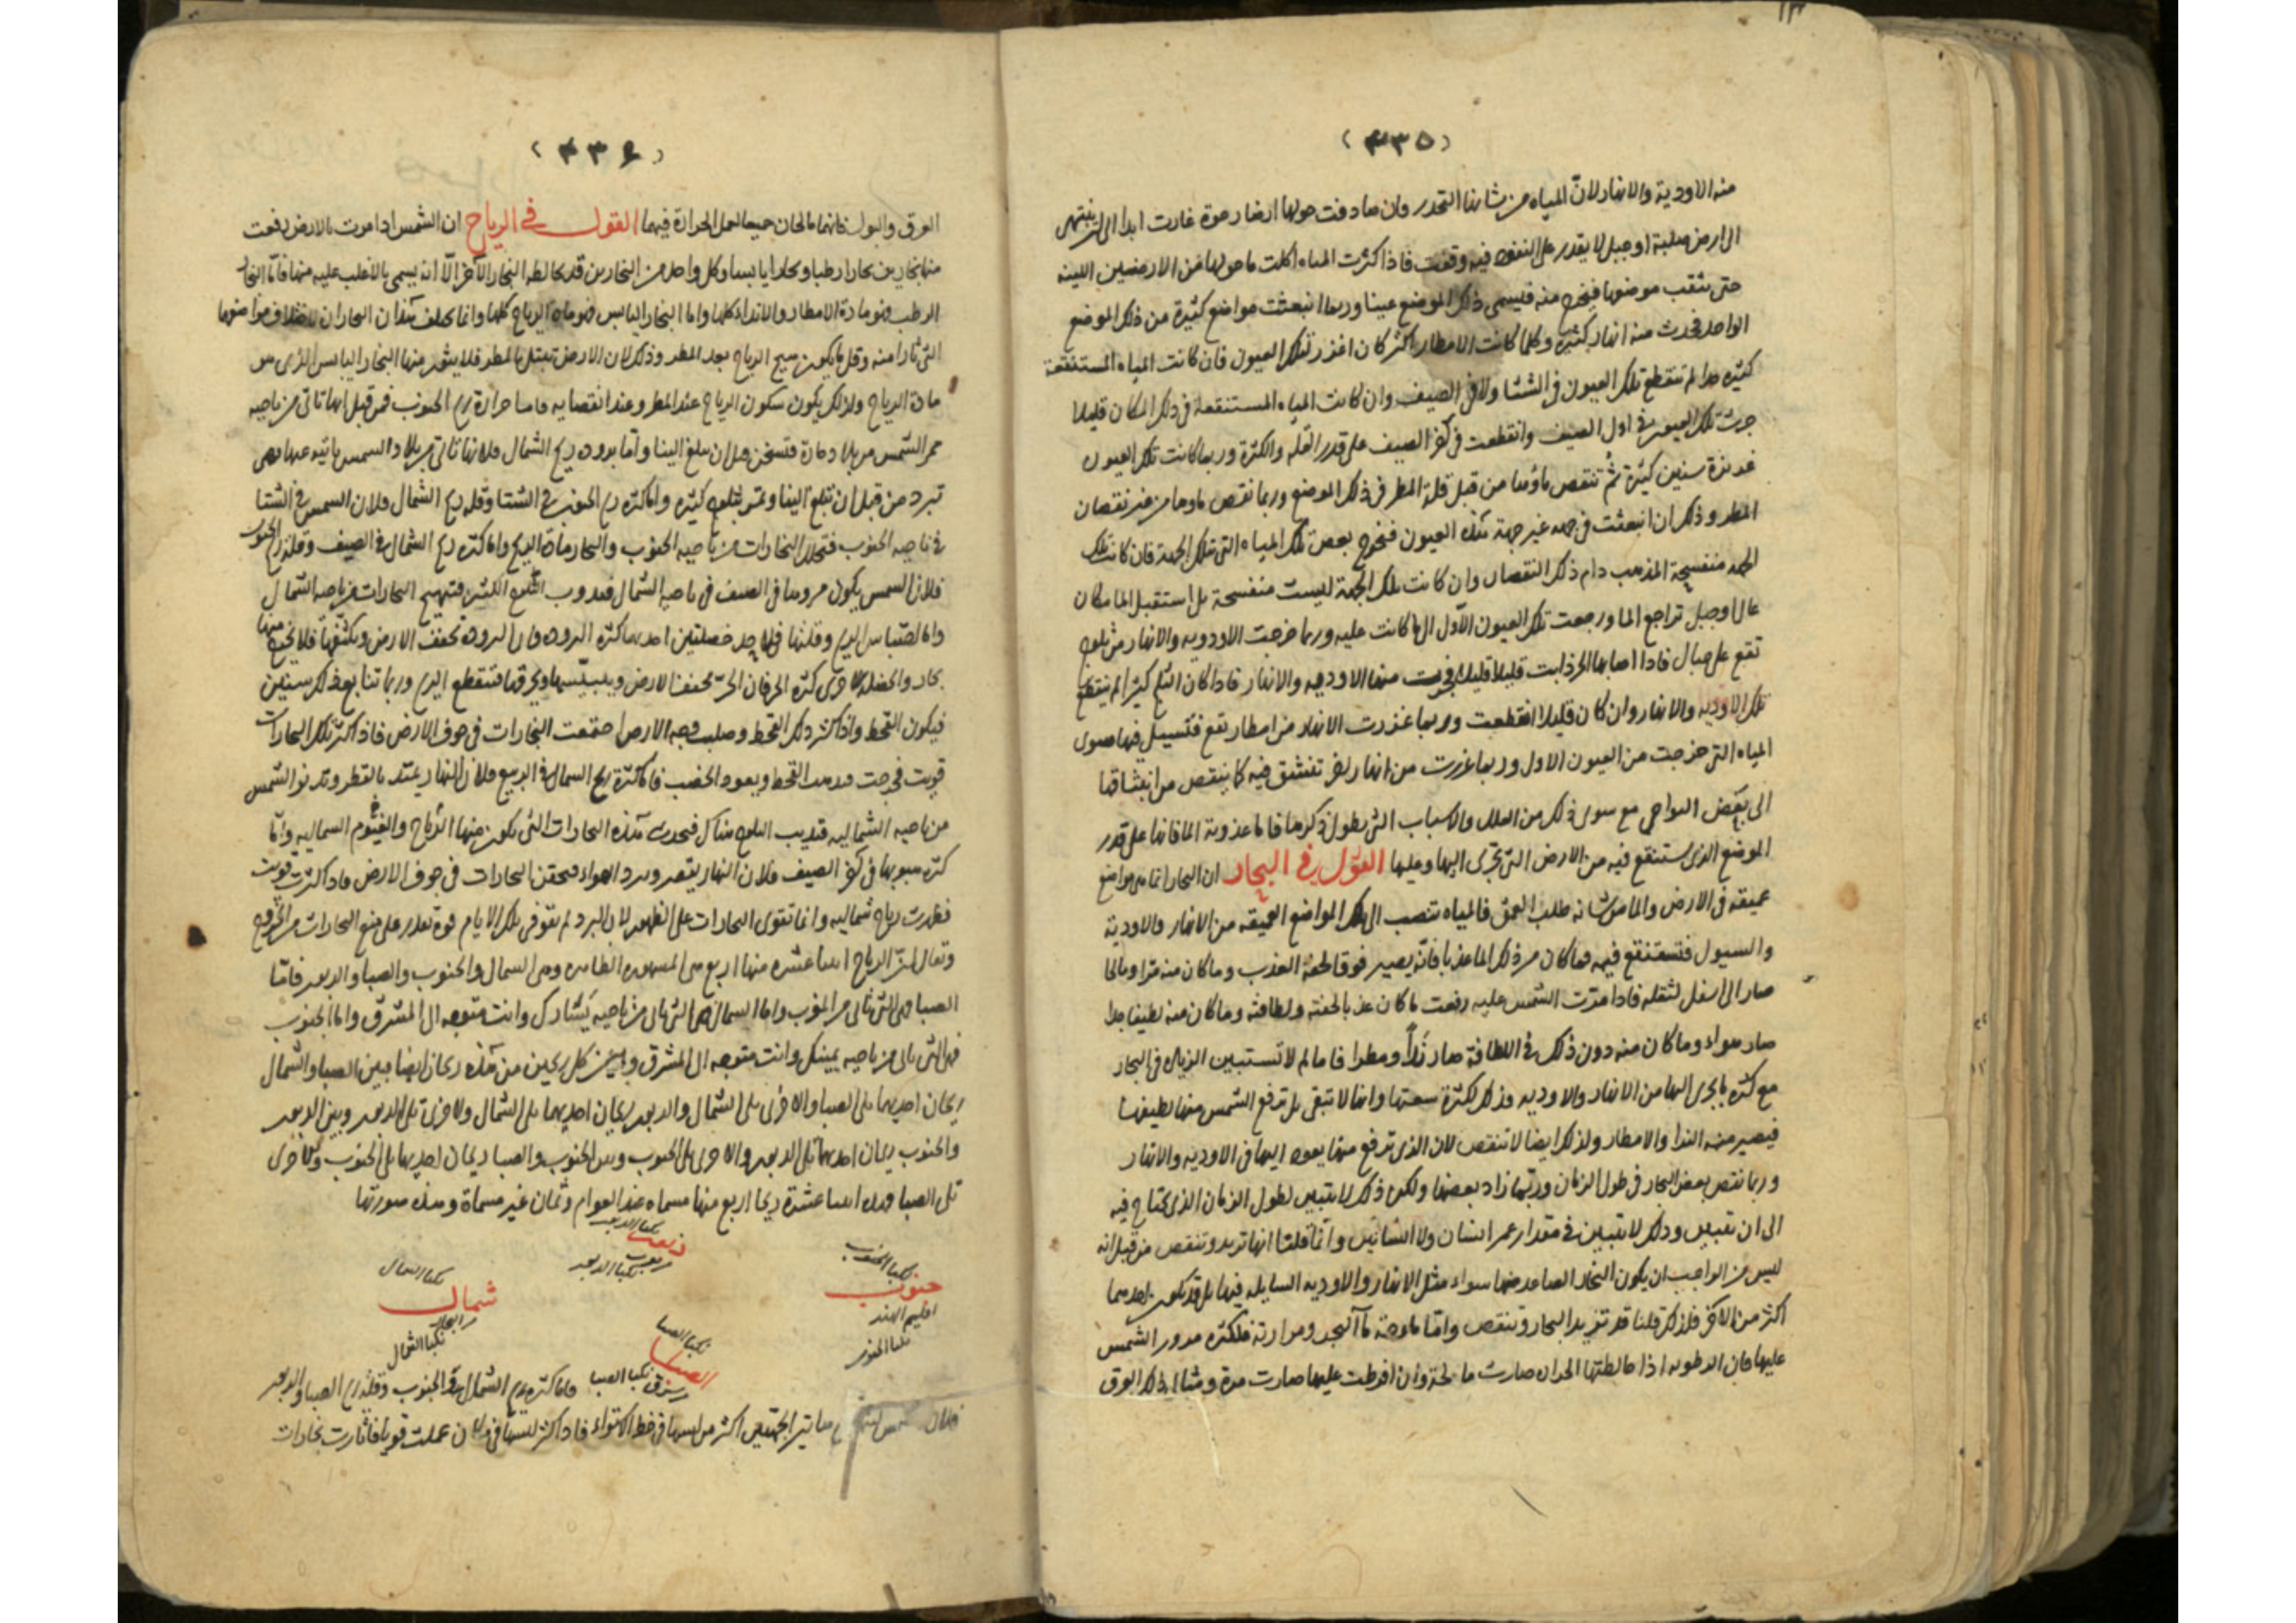 (٤٣٥)
منه الاودية والانهار لانّ المياه من شانها التحدر وان صادفت حولها ارضا رخوة غارت ابدا الى ان ينتهى
الى ارض صلبة او جبل لا يقدر على النفوذ فيه وقفت فاذا كثرت المياه اكلت ما حولها من الارضين اللينة
حتى تثقب موضعا فيخرج منه فليسمى ذلك الموضع عينا وربما انبعثت مواضع كثيرة من ذلك الموضع
الواحد فحدث منه انهار كثيرة وكلما كانت الامطار اكثر كان اغزر لتلك العيون فان كانت المياه المستنقعة
كثيره جدا لم تنقطع تلك العيون فى الشتا ولا فى الصيف وان كانت المياه المستنقعة فى ذلك المكان قليلا
جرت تلك العيون فى اول الصيف وانقطعت فى آخر الصيف على قدر القله والكثرة وربما كانت تلك العيون
غزيزة سنين كثيرة ثم تنقص ماؤها من قبل قلة المطر فى ذلك الموضع وربما نقص ماوها من غير نقصان
المطر وذلك ان انبعثت فى جهه غير جهة هذه العيون فتخرج بعض تلك المياه الى تلك الجهة فان كانت تلك
الجهه منفسحة المذهب دام ذلك النقصان وان كانت تلك الجهة ليست منفسحة بل استقبل الما مكان
عال او جبل تراجع الما ورجعت تلك العيون الاول الى ما كانت عليه وربما خرجت الاوديه والانهار من ثلوج
تقع على جبال فاذا اصابها الحر ذابت قليلا قليلا فجرت منها الاوديه والانهار فاذا كان الثلج كثيرا لم ينقطع
تلك الاوديه والانهار وان كان قليلا انقطعت وربما غزرت الانهار من امطار تقع فتسيل فيها سوى
المياه التى خرجت من العيون الاول وربما غزرت من انهار اخر تنشق فيه كما ينقص من انبثاقها
الى بعض النواحى مع سوى ذلك من العلل والاسباب التى يطول ذكرها فاما عذوبة الما فانها على قدر
الموضع الذى يستنقع فيه من الارض التى تجرى اليها وعليها القول فى البحار ان البحار انما هى مواضع
عميقه فى الارض والما من شانه طلب العمق فالمياه تنصب الى تلك المواضع العميقه من الانهار والاودية
والسيول فتستنقع فيه فما كان من ذلك الما عذبا فانّه يصير فوقا لخفة العذب وما كان منه مرّا ومالحا
صار الى اسفل لثقله فاذا مرّت الشمس عليه رفعت ما كان عذبا لخفته ولطافته وما كان منه لطيفا جدا
صار هواء وما كان منه دون ذلك فى اللطافة صار نَدًا ومطرا فاما لم لا تستبين الزياده فى البحار
مع كثره ما يجرى اليها من الانهار والاوديه وذلك لكثرة سعتها وانها لا تبقى بل ترفع الشمس منها لطيفها
فيصير منه الندا والامطار ولذلك ايضا لا تنقص لان الذى ترفع منها يعود اليها فى الاوديه والانهار
وربما نقص بعض البحار فى طول الزمان وربّما زاد بعضها ولكن ذلك لا يتبين لطول الزمان الذى يحتاج فيه
الى ان تتبين وذلك لا تتبين فى مقدار عمر انسان ولا انسانين وانّما قلنا انها تزيد وتنقص من قبل انه
ليس من الواجب ان يكون البخار الصاعد منها سواء مثل الانهار والاوديه السايله فيها بل قد يكون احدهما
اكثر من الاخر فلذلك قلنا قد تزيد البحار وتنقص وامّا ملوحة ماآ البحر ومرارته فلكثره مرور الشمس
عليها فان الرطوبه اذا خالطتها الحراره صارت مالحة وان افرطت عليها صارت مرة ومثال ذلك العرق
(٤٣٦)
العرق والبول فانهما مالحان جميعا لعمل الحرارة فيهما القول فى الرياح ان الشمس اذا مرت بالارض رفعت
منها بخارين بخارا رطبا وبخارا يابسا وكل واحد من البخارين قد يخالطه البخار الآخر الّا انه يسمى بالاغلب عليه منها فامّا البخار
الرطب فهو مادة الامطار والانداء كلها واما البخار اليابس فهو مادة الرياح كلها وانما يختلف هذان البخاران لاختلاف مواضعها
التى ثارا منه وقل ما يكون هيج الرياح بعد المطر وذلك لان الارض تبتل بالمطر فلا يثور منها البخار اليابس الذى هو
مادة الرياح ولذلك يكون سكون الرياح عند المطر وعند انقضايه فاما حرارة ريح الجنوب فمن قبل انها تاتى من ناحيه
ممر الشمس من بلاد حارة فتسخن قبل ان تبلغ الينا وامّا بروده ريح الشمال فلانها تاتى من بلاد الشمس نائيه عنها فهى
تبرد من قبل ان تبلغ الينا وتمر بثلوج كثيره واما كثره ريح الجنوب فى الشتا وقله ريح الشمال فلان الشمس فى الشتا
فى ناحيه الجنوب فتحلل البخارات من ناحيه الجنوب والبخار مادة الريح واما كثره ريح الشمال فى الصيف وقله ريح الجنوب
فلان الشمس يكون مرورها فى الصيف فى ناحيه الشمال فتذوب الثلوج الكثيره فتهيج البخارات من ناحيه الشمال
واما احتباس الريح وقلتها فلاحد خصلتين احدهما كثره البروده فان البروده تجفف الارض وتكثفها فلا يخرج منها
بخار والخصله الاخرى كثره الحر فان الحرّ يجفف الارض وييبسها ويحرقها فتنقطع الريح وربما تتابع ذلك سنين
فيكون القحط واذا كثر ذلك القحط وصلب وجه الارض احتقنت البخارات فى جوف الارض فاذا كثرت تلك البخارات
قويت فخرجت فيذهب القحط ويعود الخصب فاما كثرة ريح الشمال فى الربيع فلان النهار يمتد بالقطر وتدنو الشمس
من ناحيه الشماليه فتذيب الثلوج هناك فيحدث هذه البخارات التى تكون منها الرياح والغيوم الشماليه وامّا
كثره هبوبها فى آخر الصيف فلان النهار يقصر ويبرد الهواء فتحتقن البخارات فى جوف الارض فاذا كثرت قويت
فظهرت رياح شماليه وانما تقوى البخارات على الظهور لان البرد لم يقو فى تلك الايام قوة يقدر على منع البخارات من الخروج
ويقال ان الرياح اثنتا عشره منها اربع هى المشهوره الظاهره وهى الشمال والجنوب والصبا والدبور فامّا
الصبا فهى التى تاتى من المغرب واما الشمال فهى التى تاتى من ناحيه يسارك وانت متوجه الى المشرق واما الجنوب
فهى التى تاتى من ناحيه يمينك وانت متوجه الى المشرق وبين كل ريحين من هذه ريحان ايضا بين الصبا والشمال
ريحان احديهما تلى الصبا والاخرى تلى الشمال والدبور ريحان احديهما تلى الشمال والاخرى تلى الدبور وبين الدبور
والجنوب ريحان احديهما تلى الدبور والاخرى تلى الجنوب وبين الجنوب والصبا ريحان احديهما تلى الجنوب والاخرى
تلى الصبا فهذه اثنتا عشرة ريحا اربع منها مسماه عند العوام وثمان غير مسماة وهذه صورتها
نكبا الجنوب
جنوب
اقليم الهند
نكبا الجنوب
نكبا الدبور
نكبا الدبور
نكبا الصبا
الصبا
مشرق
نكبا الصبا
نكبا الشمال
شمال
نكبا الشمال
واما كثره ريح الشمال والجنوب وقلة ريح الصبا والدبور
فلان الشمس هاتين الجهتين اكثر من لبسها فى خط الاستواء فاذا كثر لبسها فى مكان عملت قويا فاثارت بخارات